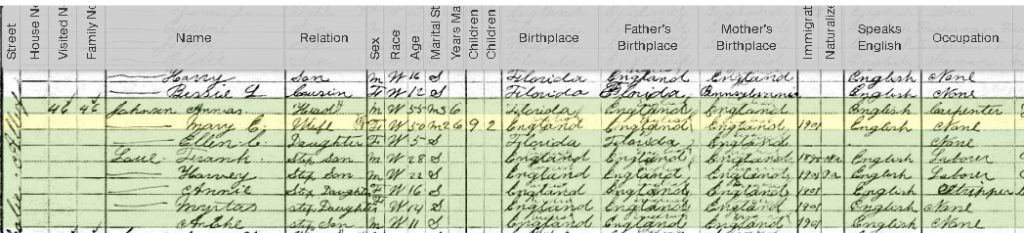 Street House No Visited N Family No Name Relation Sex Race Age Marital St Years Ma Children Children Birthplace Father's Birthplace Mother's Birthplace Immigrat Naturalize Speaks English Occupation
Harry Son M W 16 S Florida England England English None
Bessie L Cousin F W 12 S Florida Florida Pennsylvania English None
Johnson Head M W 55 M2 6 Florida England England English Carpenter
Mary C. Wife F W 50 M2 6 9 2 England England England 1901 English None
Ellen C. Daughter F W 5 S Florida Florida England None
Frank Step Son M W 28 S England England England English Laborer
Harvey Step Son M W 22 S England England England English Laborer
Annie Step Daughter F W 16 S England England England 1901 English Stripper
Step Daughter F W 14 S England England England 1901 English None
Step Son M W 11 S England England England 1901 English None